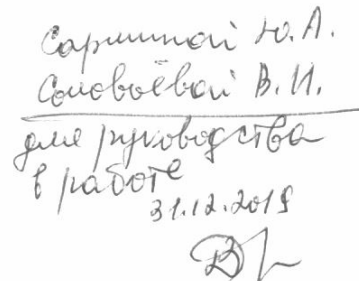 Саришной Ю.А.
Соловьёвой В.И.
для руководства
в работе
31.12.2019